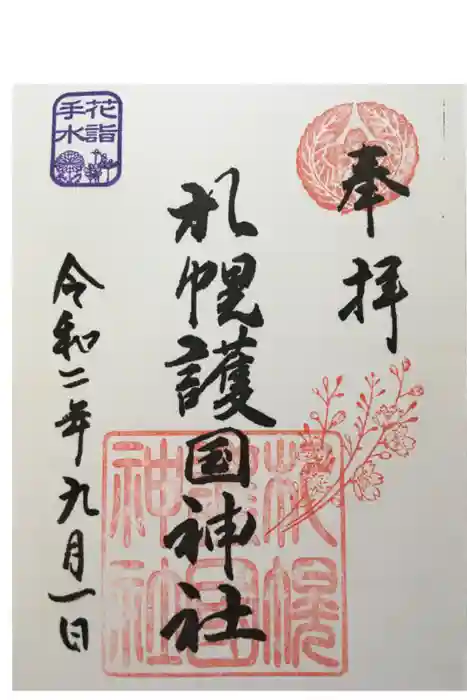 奉拝
札幌護国神社
札幌
護国
神社
令和二年九月一日
花詣
手水